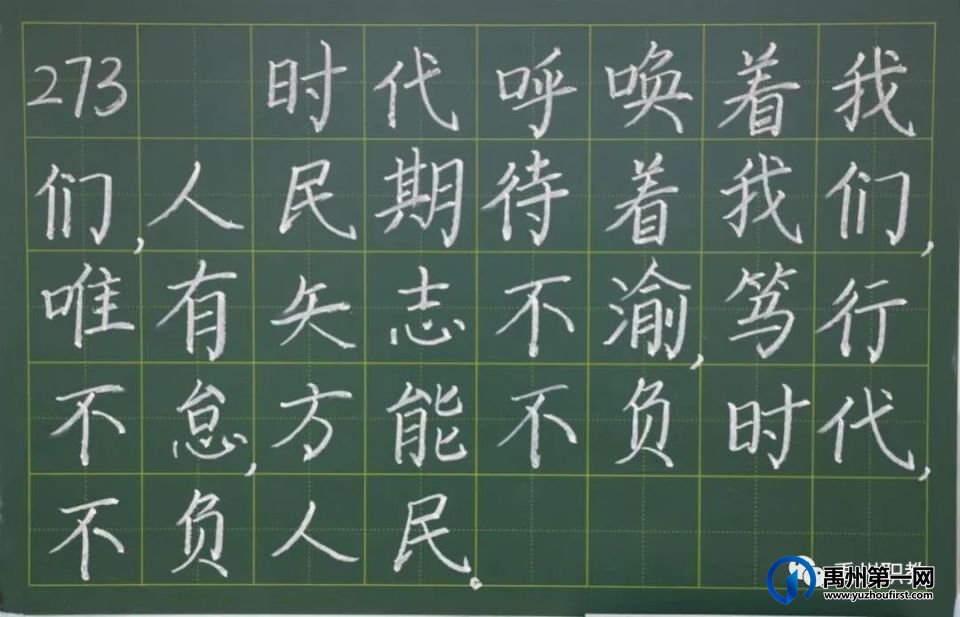 273 时代呼唤着我
们,人民期待着我们,
唯有矢志不渝,笃行
不怠,方能不负时代,
不负人民。
禹州第一网
www.yuzhoufirst.com